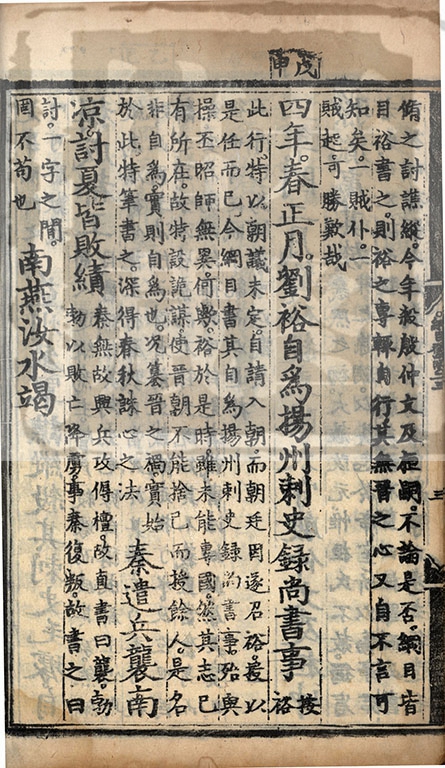 戊申
脩之討譙縱。今年殺殷仲文及桓嗣。不論是否。綱目皆
目裕書之。則裕之專輒自行其無晉之心又自不言可
知矣。一賊仆。一
賊起。可勝歎哉
四年。春正月。劉裕自爲揚州刺史録尚書事
按
裕
此行。特以朝議未定。自請入朝。而朝廷因遂召裕。授以
是任而已今綱目書其自爲揚州刺史録尚書事。殆與
操丕昭師無異。何歟。裕於是時。雖未能專國。然其志已
有所在。故特設詭謀。使晉朝不能捨已而授餘人。是名
非自爲。實則自爲也。况簒晉之禍。實始
於此特筆書之。深得春秋誅心之法
秦遣兵襲南
凉。討夏皆敗績
秦無故興兵攻傉檀。故直書曰襲。勃
勃以敗亡降虜。事秦復叛。故書之曰
討。一字之間。
罔不苟也
南燕汝水竭